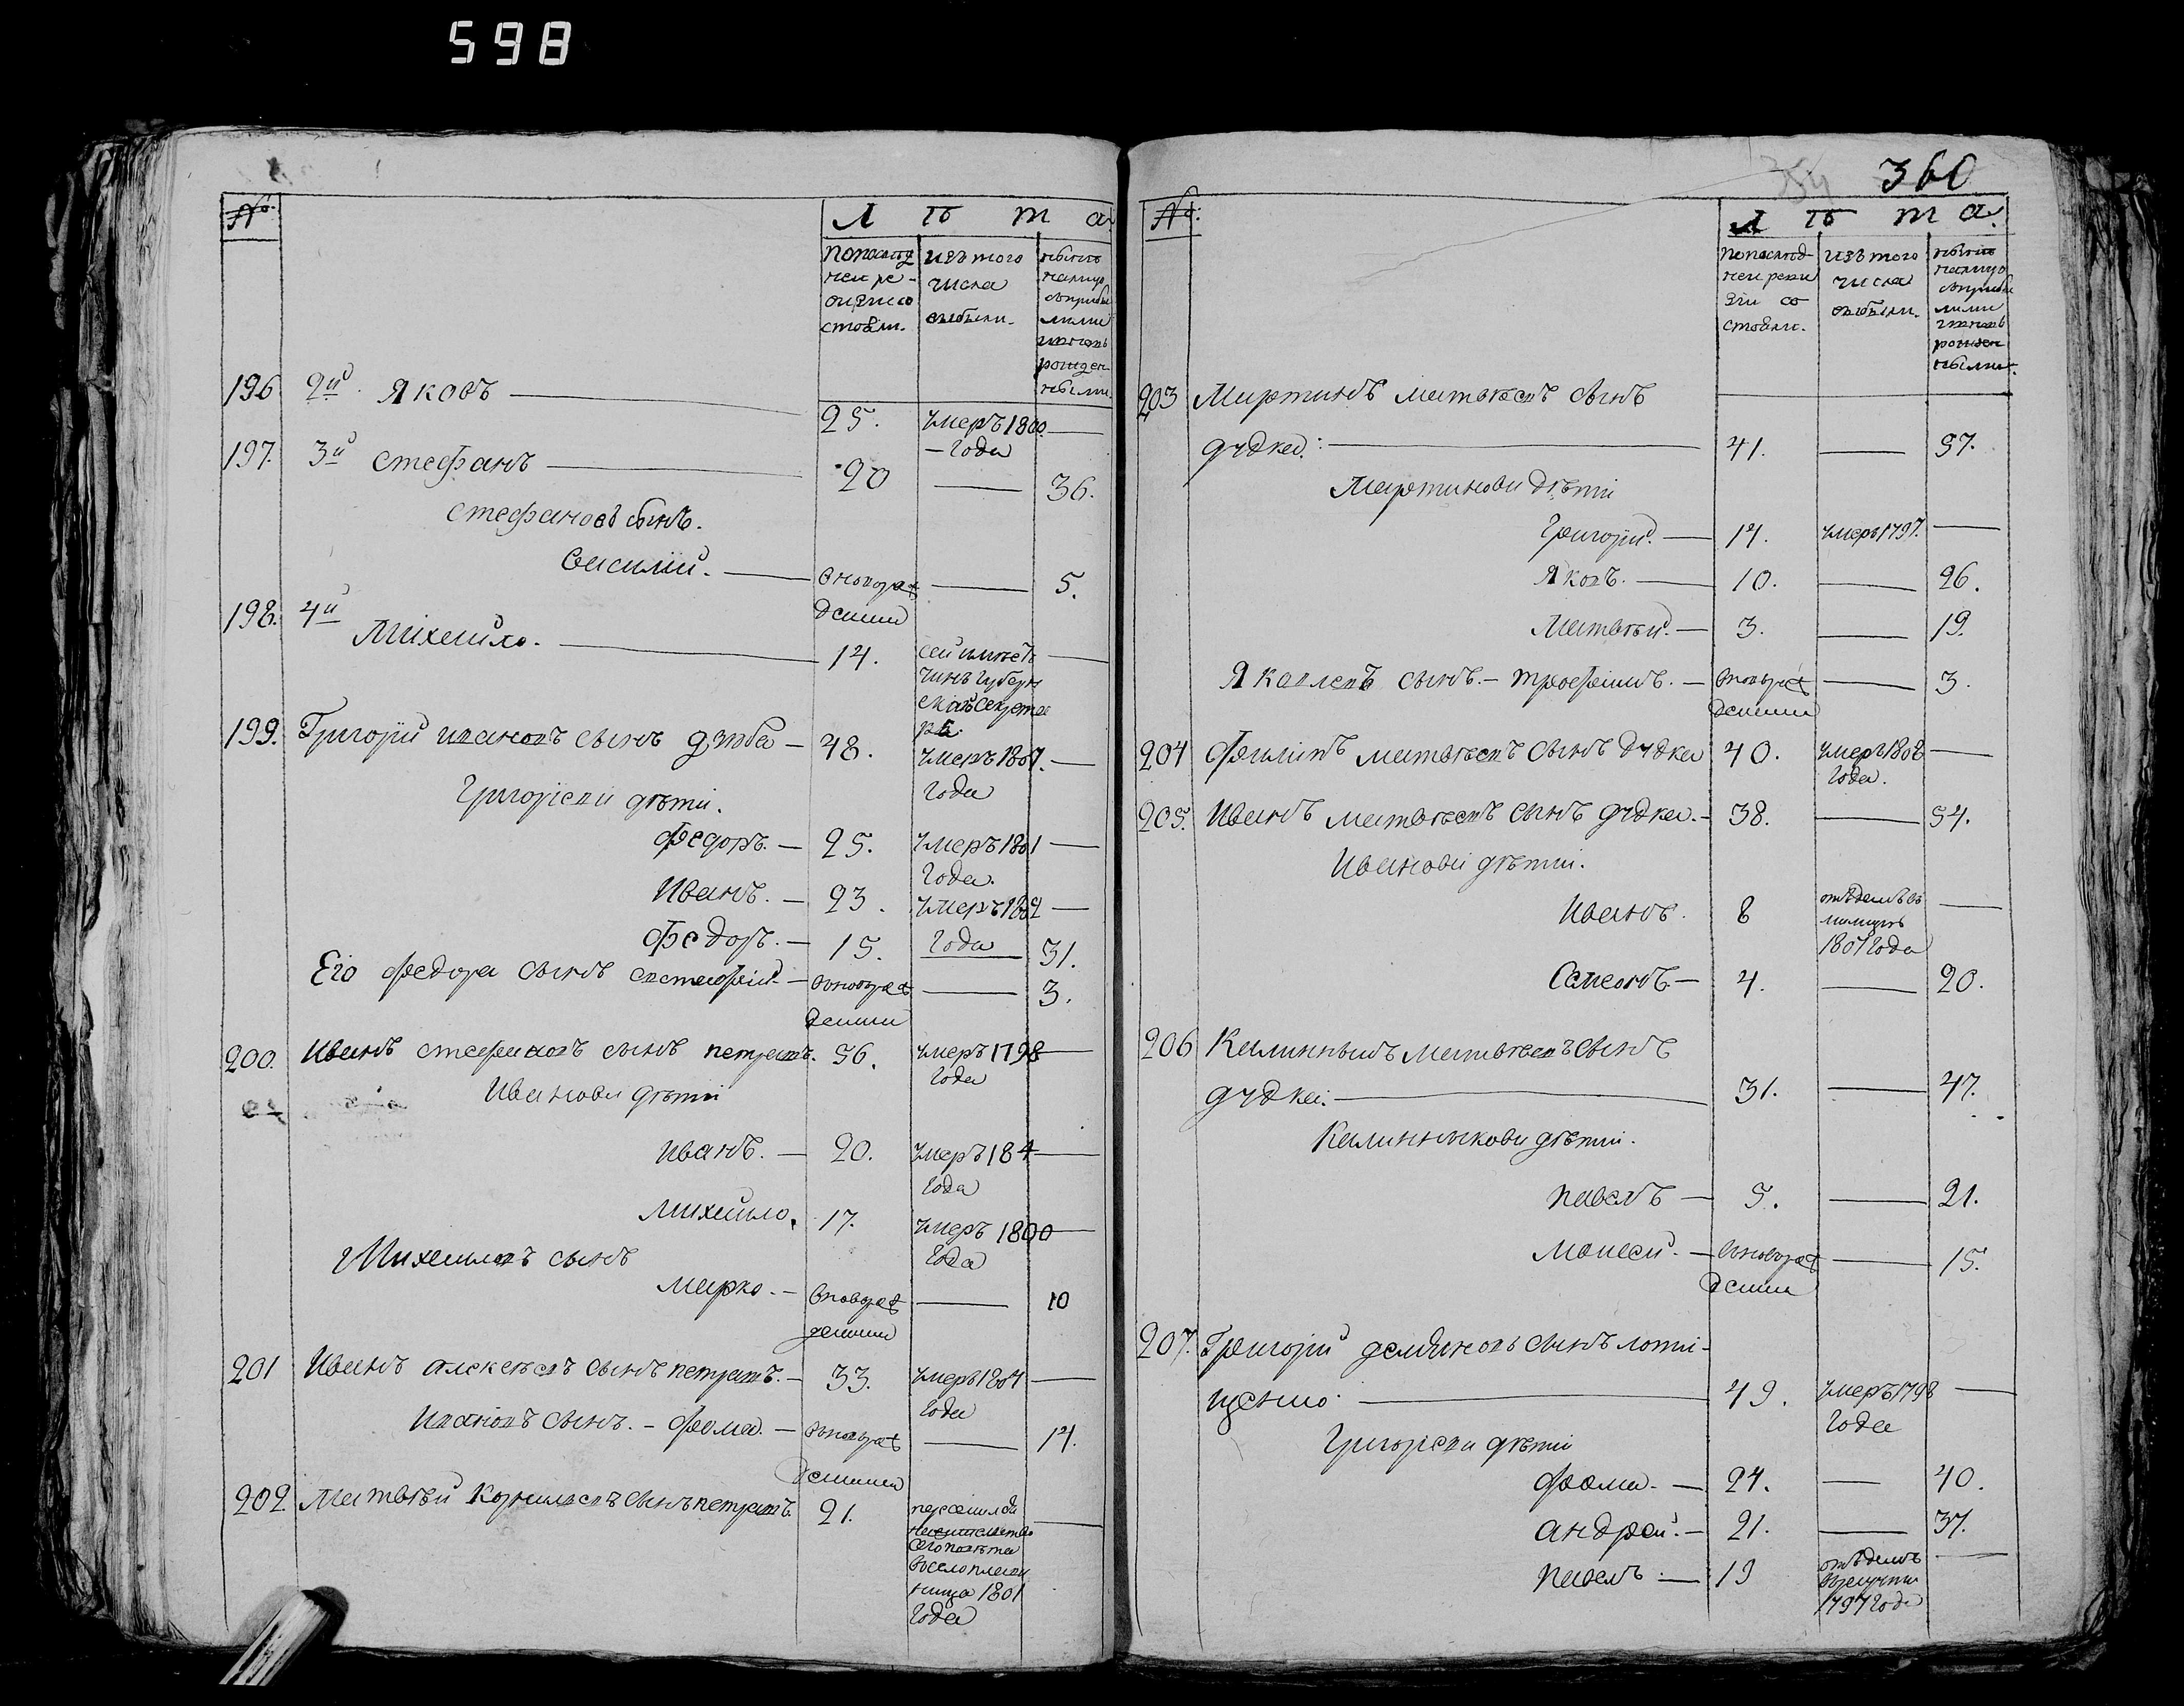 598
№
Лѣта
по послѣд
ней ре-
визии со
стояли.
изъ того
числа
выбыли.
нынѣ
налицо
рожден
ными
196 2й Яковъ 25. умеръ 1800
года
197. 3й стефанъ 20 36.
стефановъ сынъ.
василий. в новорож 5.
дении
198. 4й
Михайло. 14. сей имѣетъ
чинъ губерн
скаго секрета
ра.
199. Григорїй ивановъ сынъ дзюба 48. умеръ 1807.
года
Григорїеви дѣти.
Федоръ. 25. умеръ 1801
года.
Иванъ. 23. умеръ 1802
года
Федоръ. 15. 31.
Его федора сынъ евстафїй в новорож 3.
дении
200. Иванъ стефановъ сынъ петрашъ. 56. умеръ 1798
года
Иванови дѣти
Иванъ. 20. умеръ 184
года
михайло. 17. умеръ 1800
года
Михайловъ сынъ
марко. в новорож 10
дении
201 Иванъ алексѣевъ сынъ петрашъ. 33. умеръ 1804
года
Ивановъ сынъ. - фома. в новорож 14.
дении
202. Матвѣй Корнилиевъ сынъ петрашъ. 21.
1801
года
360
№
Лѣта
по послѣд-
ней реви
зии со
стояли.
изъ того
числа
выбыли.
нынѣ
налицо
рожден
ными.
203 Мартинъ матвѣевъ сынъ
дудка. 41. 57.
Мартинови дѣти
Григорїй. 14. умеръ 1797.
Яковъ. 10. 26.
Матвѣй. 3. 19.
Яковлевъ сынъ. - трофимъ. в новорож 3.
дении
204 Филипъ матвѣевъ сынъ дудка 40. умеръ 1808
года.
205. Иванъ матвѣевъ сынъ дудка. 38. 54.
Иванови дѣти.
Иванъ. 8 отданъ въ
милицию
1807 года
Семенъ 4. 20.
206 Калинникъ матвѣевъ сынъ
дудка. 31. 47.
Калинникови дѣти.
павелъ 5. 21.
моисей. в новорож 15.
дении
207. Григорїй демяновъ сынъ лоти-
щенко. 49. умеръ 1798
года
Григорїеви дѣти
фома. 24. 40.
андрей. 21. 37.
павелъ. 19 отданъ
в рекруты
1797 года